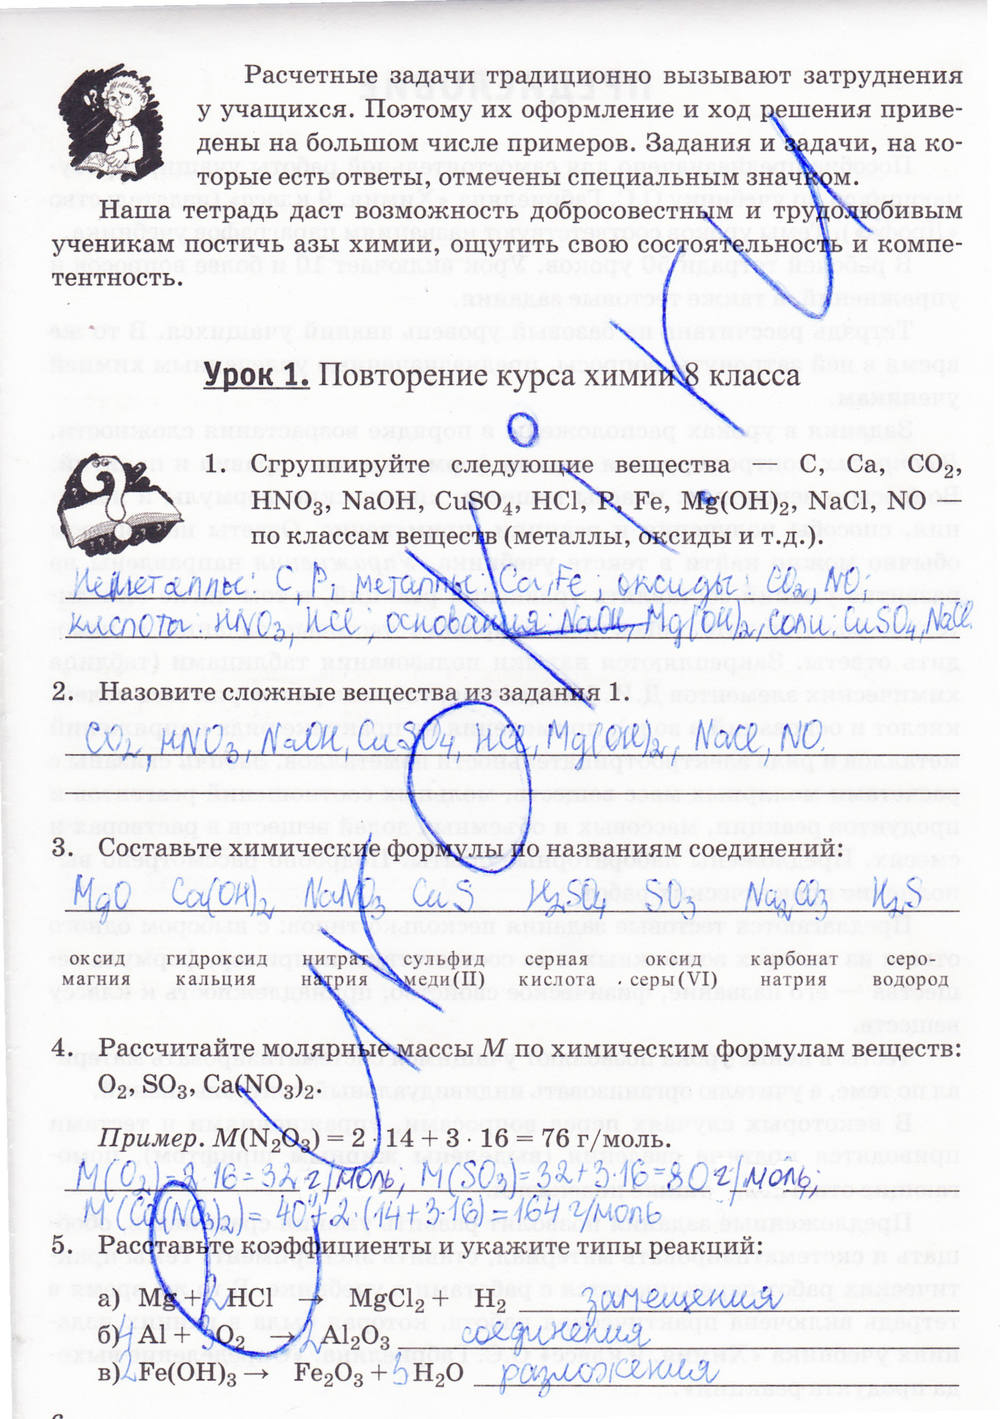 Расчетные задачи традиционно вызывают затруднения
у учащихся. Поэтому их оформление и ход решения приве-
дены на большом числе примеров. Задания и задачи, на ко-
торые есть ответы, отмечены специальным значком.
Наша тетрадь даст возможность добросовестным и трудолюбивым
ученикам постичь азы химии, ощутить свою состоятельность и компе-
тентность.
Урок 1. Повторение курса химии 8 класса
1. Сгруппируйте следующие вещества — C, Ca, CO2,
HNO3, NaOH, CuSO4, HCl, P, Fe, Mg(OH)2, NaCl, NO —
по классам веществ (металлы, оксиды и т.д.).
Неметаллы: C, P; металлы: Ca, Fe; оксиды: CO2, NO;
кислоты: HNO3, HCl; основания: NaOH, Mg(OH)2, соли: CuSO4, NaCl.
2. Назовите сложные вещества из задания 1.
CO2, HNO3, NaOH, CuSO4, HCl, Mg(OH)2, NaCl, NO.
3. Составьте химические формулы по названиям соединений:
MgO Ca(OH)2 NaNO3 CuS H2SO4 SO3 Na2CO3 H2S
оксид гидроксид нитрат сульфид серная оксид карбонат серо-
магния кальция натрия меди(II) кислота серы(VI) натрия водород
4. Рассчитайте молярные массы M по химическим формулам веществ:
O2, SO3, Ca(NO3)2.
Пример. M(N2O3) = 2 · 14 + 3 · 16 = 76 г/моль.
M(O2)=2·16=32 г/моль; M(SO3)=32+3·16=80 г/моль;
M(Ca(NO3)2)=40+2·(14+3·16)=164 г/моль
5. Расставьте коэффициенты и укажите типы реакций:
а) Mg + 2 HCl → MgCl2 + H2 замещения
б) 4 Al + 3 O2 → 2 Al2O3 соединения
в) 2 Fe(OH)3 → Fe2O3 + 3 H2O разложения